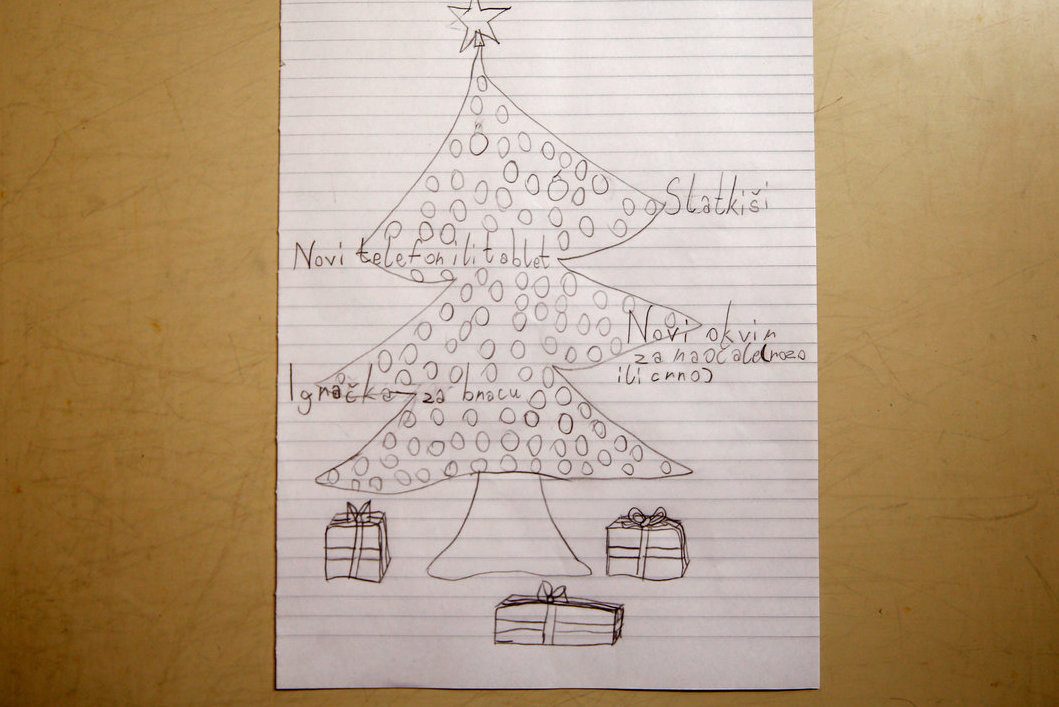 Slatkiši
Novi telefon ili tablet
Novi okvir
za naočale(rozo
ili crno)
Igračka za bracu